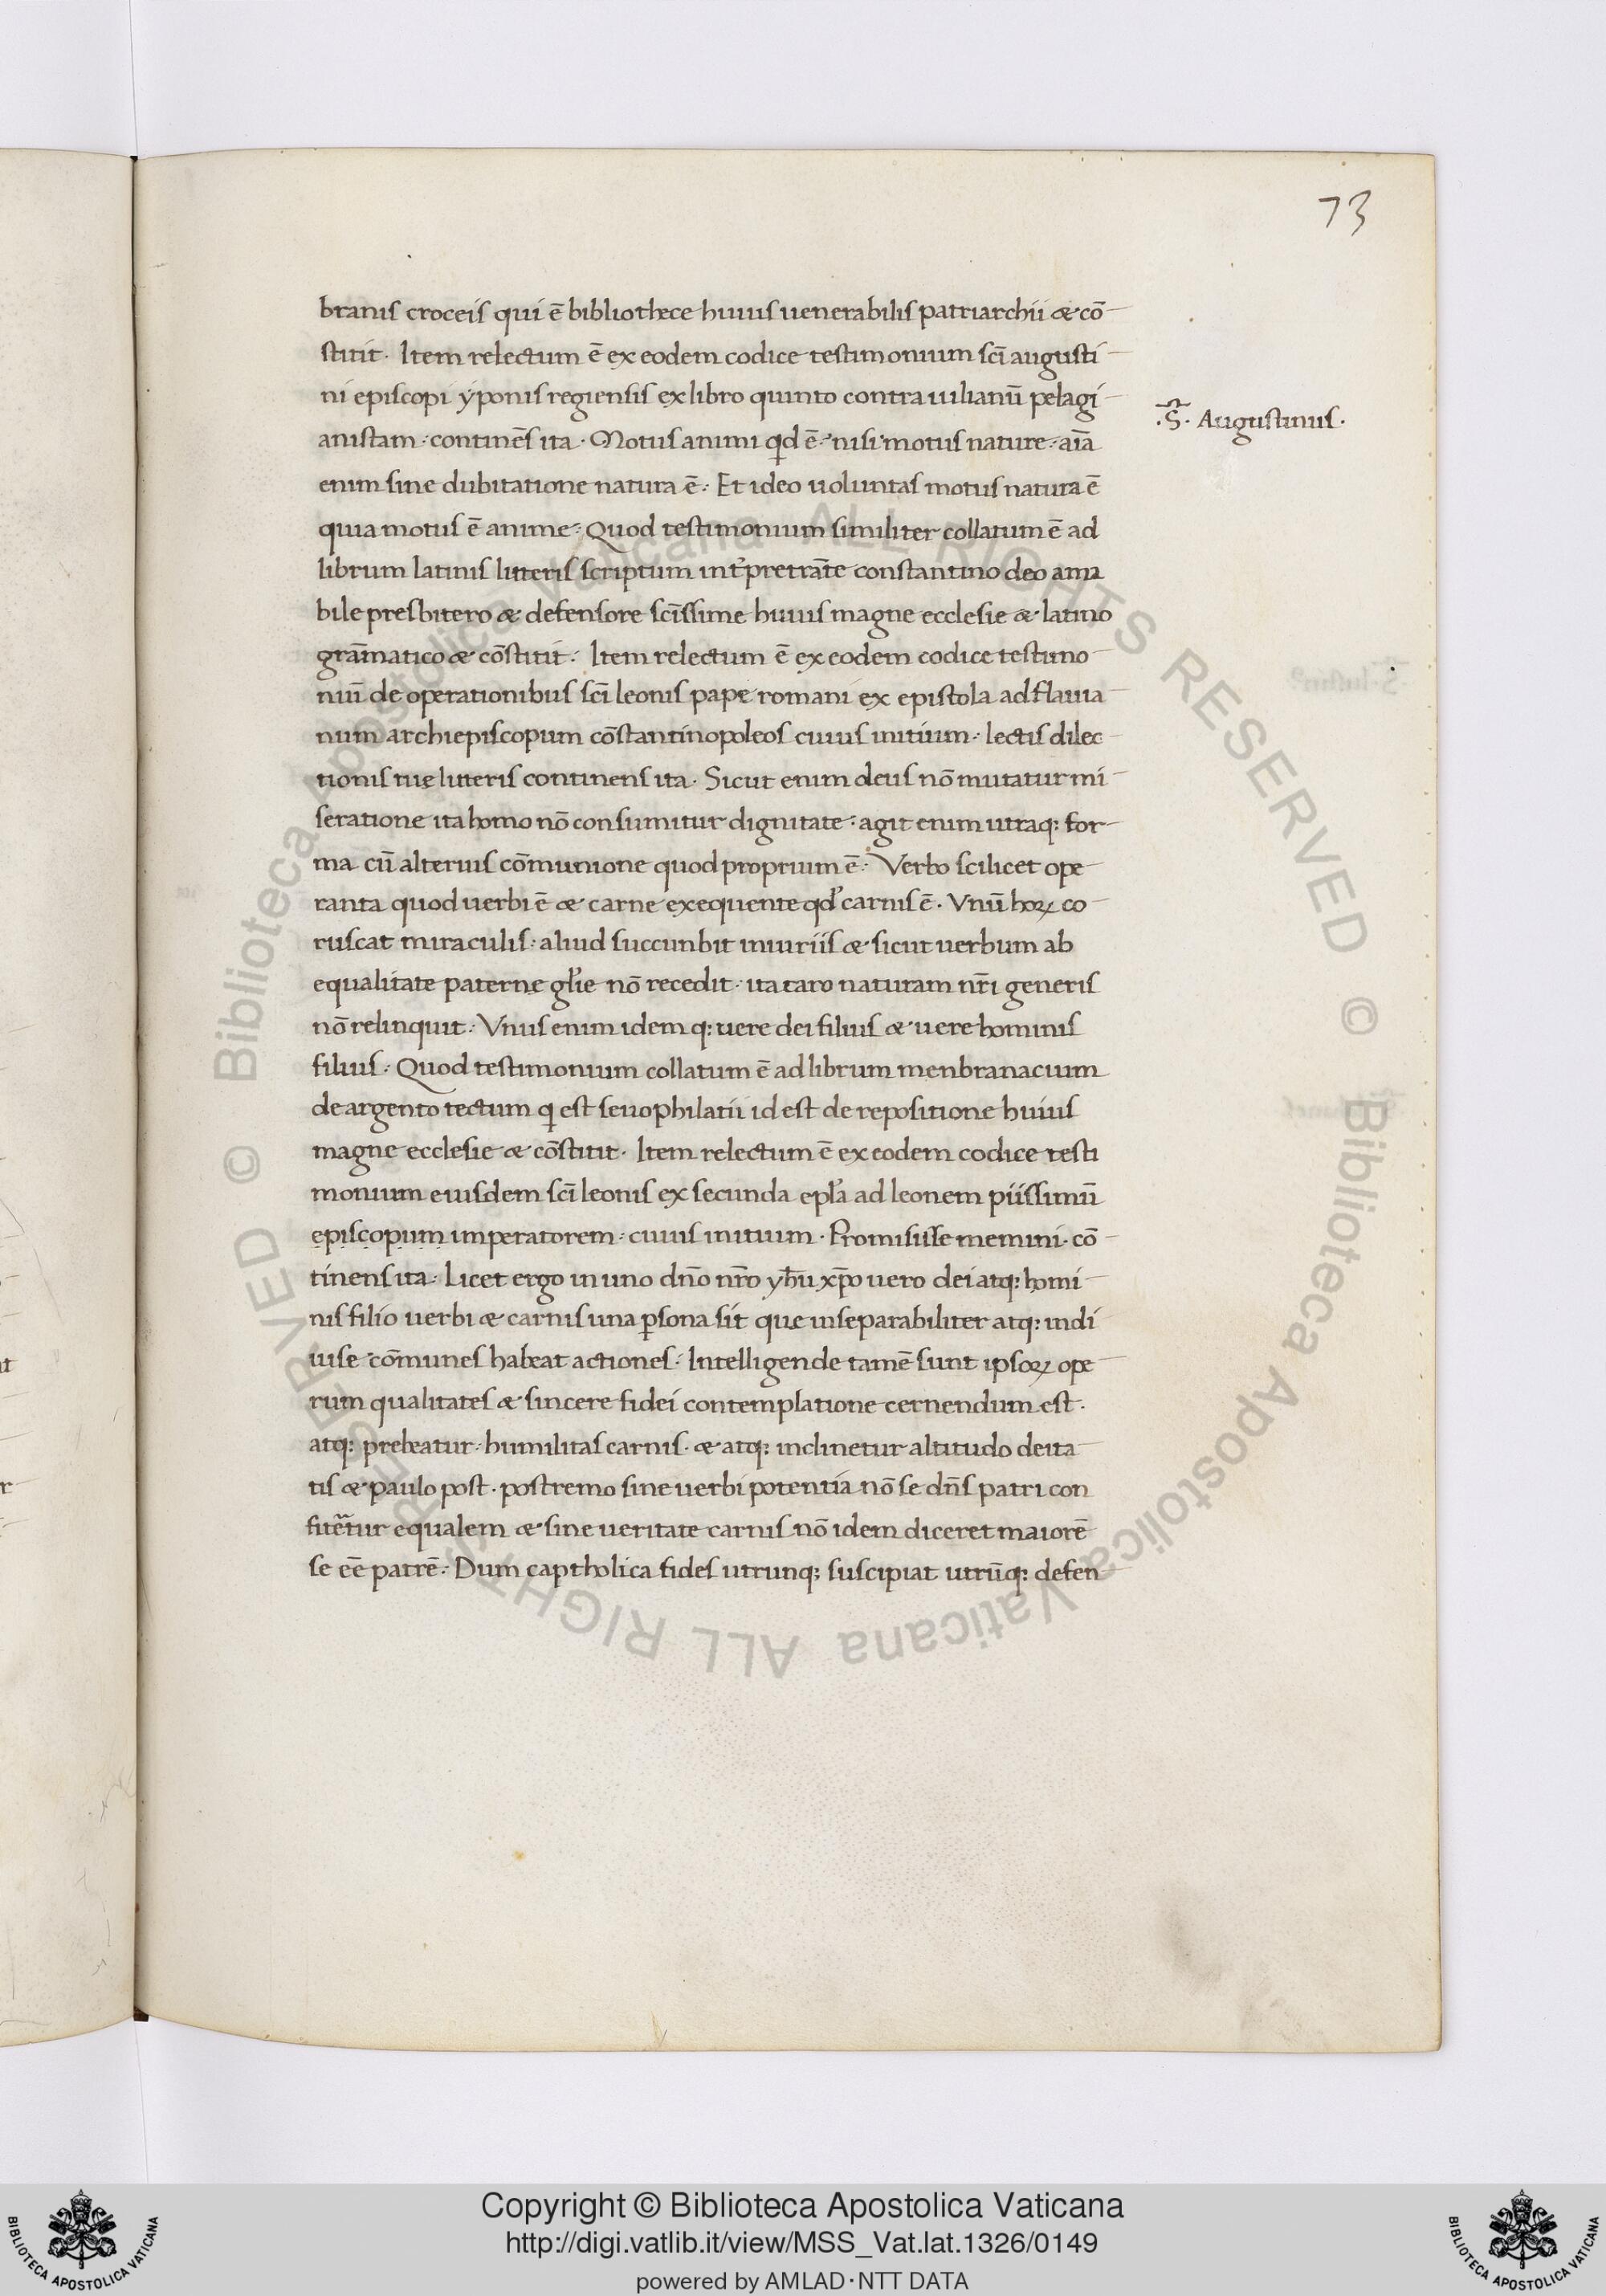 73
branis croceis qui ē bibliothece huius uenerabilis patriarchii & cō
stitit. Item relectum ē ex eodem codice testimonium scī augusti
ni episcopi ýponis regiensis ex libro quinto contra iulianū pelagi
anistam: continēs ita. Motus animi qd ē: nisi motus nature: aīa
.S. Augustinus.
enim sine dubitatione natura ē: Et ideo uoluntas motus natura ē
quia motus ē anime: Quod testimonium similiter collatum ē ad
librum latinis litteris scriptum intp̄retrāte constantino deo ama
bile presbitero & defensore scīssime huius magne ecclesie & latino
grāmatico & cōstitit: Item relectum ē ex eodem codice testimo
niū de operationibus scī leonis pape romani ex epistola ad flauia
num archiepiscopum cōstantinopoleos cuius initium: lectis dilec
tionis tuę litteris continens ita. Sicut enim deus nō mutatur mi
seratione ita homo nō consumitur dignitate: agit enim utraq: for
ma cū alterius cōmunione quod proprium ē: Verbo scilicet ope
ranta quod uerbi ē & carne exequente qd carnis ē. Vnū hoꝝ co
ruscat miraculis: aliud succunbit iniuriis & sicut uerbum ab
equalitate paterne glīe nō recedit: ita caro naturam nr̄i generis
nō relinquit: Vnus enim idem q: uere dei filius & uere hominis
filius: Quod testimonium collatum ē ad librum menbranacium
de argento tectum q est seuophilatii id est de repositione huius
magne ecclesie & cōstitit. Item relectum ē ex eodem codice testi
monium eiusdem scī leonis ex secunda epl̄a ad leonem piissimū
episcopum imperatorem: cuius initium. Promisisse memini. cō
tinens ita: Licet ergo in uno dn̄o nr̄o yh̄u xp̄o uero dei atq: homi
nis filio uerbi & carnis una ꝑsona sit que inseparabiliter atq: indi
uise cōmunes habeat actiones: Intelligende tamē sunt ipsoꝝ ope
rum qualitates & sincere fidei contemplatione cernendum est.
atq: prebeatur: humilitas carnis. & atq: inclinetur altitudo deita
tis & paulo post. postremo sine uerbi potentia nō se dn̄s patri con
fitēretur equalem & sine ueritate carnis nō idem diceret maiorē
se eē patrē: Dum captholica fides utrunq; suscipiat utrūq: defen
Copyright © Biblioteca Apostolica Vaticana
http://digi.vatlib.it/view/MSS_Vat.lat.1326/0149
powered by AMLAD·NTT DATA
BIBLIOTECA APOSTOLICA VATICANA
BIBLIOTECA APOSTOLICA VATICANA
© Biblioteca Apostolica Vaticana ALL RIGHTS RESERVED © Biblioteca Apostolica Vaticana ALL RIGHTS RESERVED